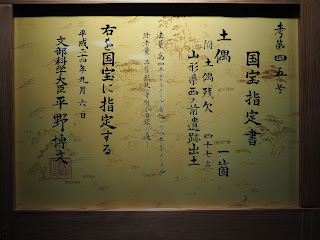 考第四五号
国宝指定書
土偶 一箇
附 土偶残欠 四十七点
山形県西ノ前遺跡出土
右を国宝に指定する
平成二十四年九月六日
文部科学大臣 平野博文